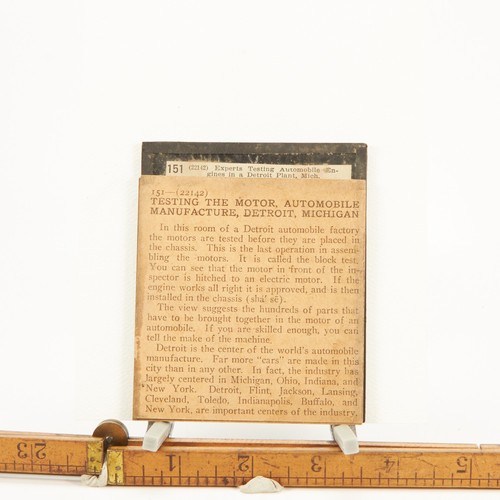 151 (22142) Experts Testing Automobile En-
gines in a Detroit Plant, Mich.
151—(22142)
TESTING THE MOTOR, AUTOMOBILE
MANUFACTURE, DETROIT, MICHIGAN
In this room of a Detroit automobile factory
the motors are tested before they are placed in
the chassis. This is the last operation in assem-
bling the motors. It is called the block test.
You can see that the motor in front of the in-
spector is hitched to an electric motor. If the
engine works all right it is approved, and is then
installed in the chassis (shȧ' sē).
The view suggests the hundreds of parts that
have to be brought together in the motor of an
automobile. If you are skilled enough, you can
tell the make of the machine.
Detroit is the center of the world's automobile
manufacture. Far more "cars" are made in this
city than in any other. In fact, the industry has
largely centered in Michigan, Ohio, Indiana, and
New York. Detroit, Flint, Jackson, Lansing,
Cleveland, Toledo, Indianapolis, Buffalo, and
New York, are important centers of the industry.
23 1 2 3 4 5